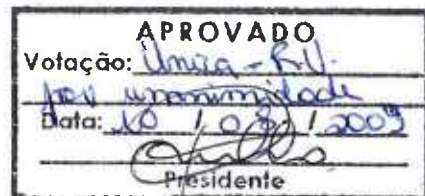 APROVADO
Votação: Única - R.U.
por unanimidade
Data: 10 / 08 / 2009
Presidente